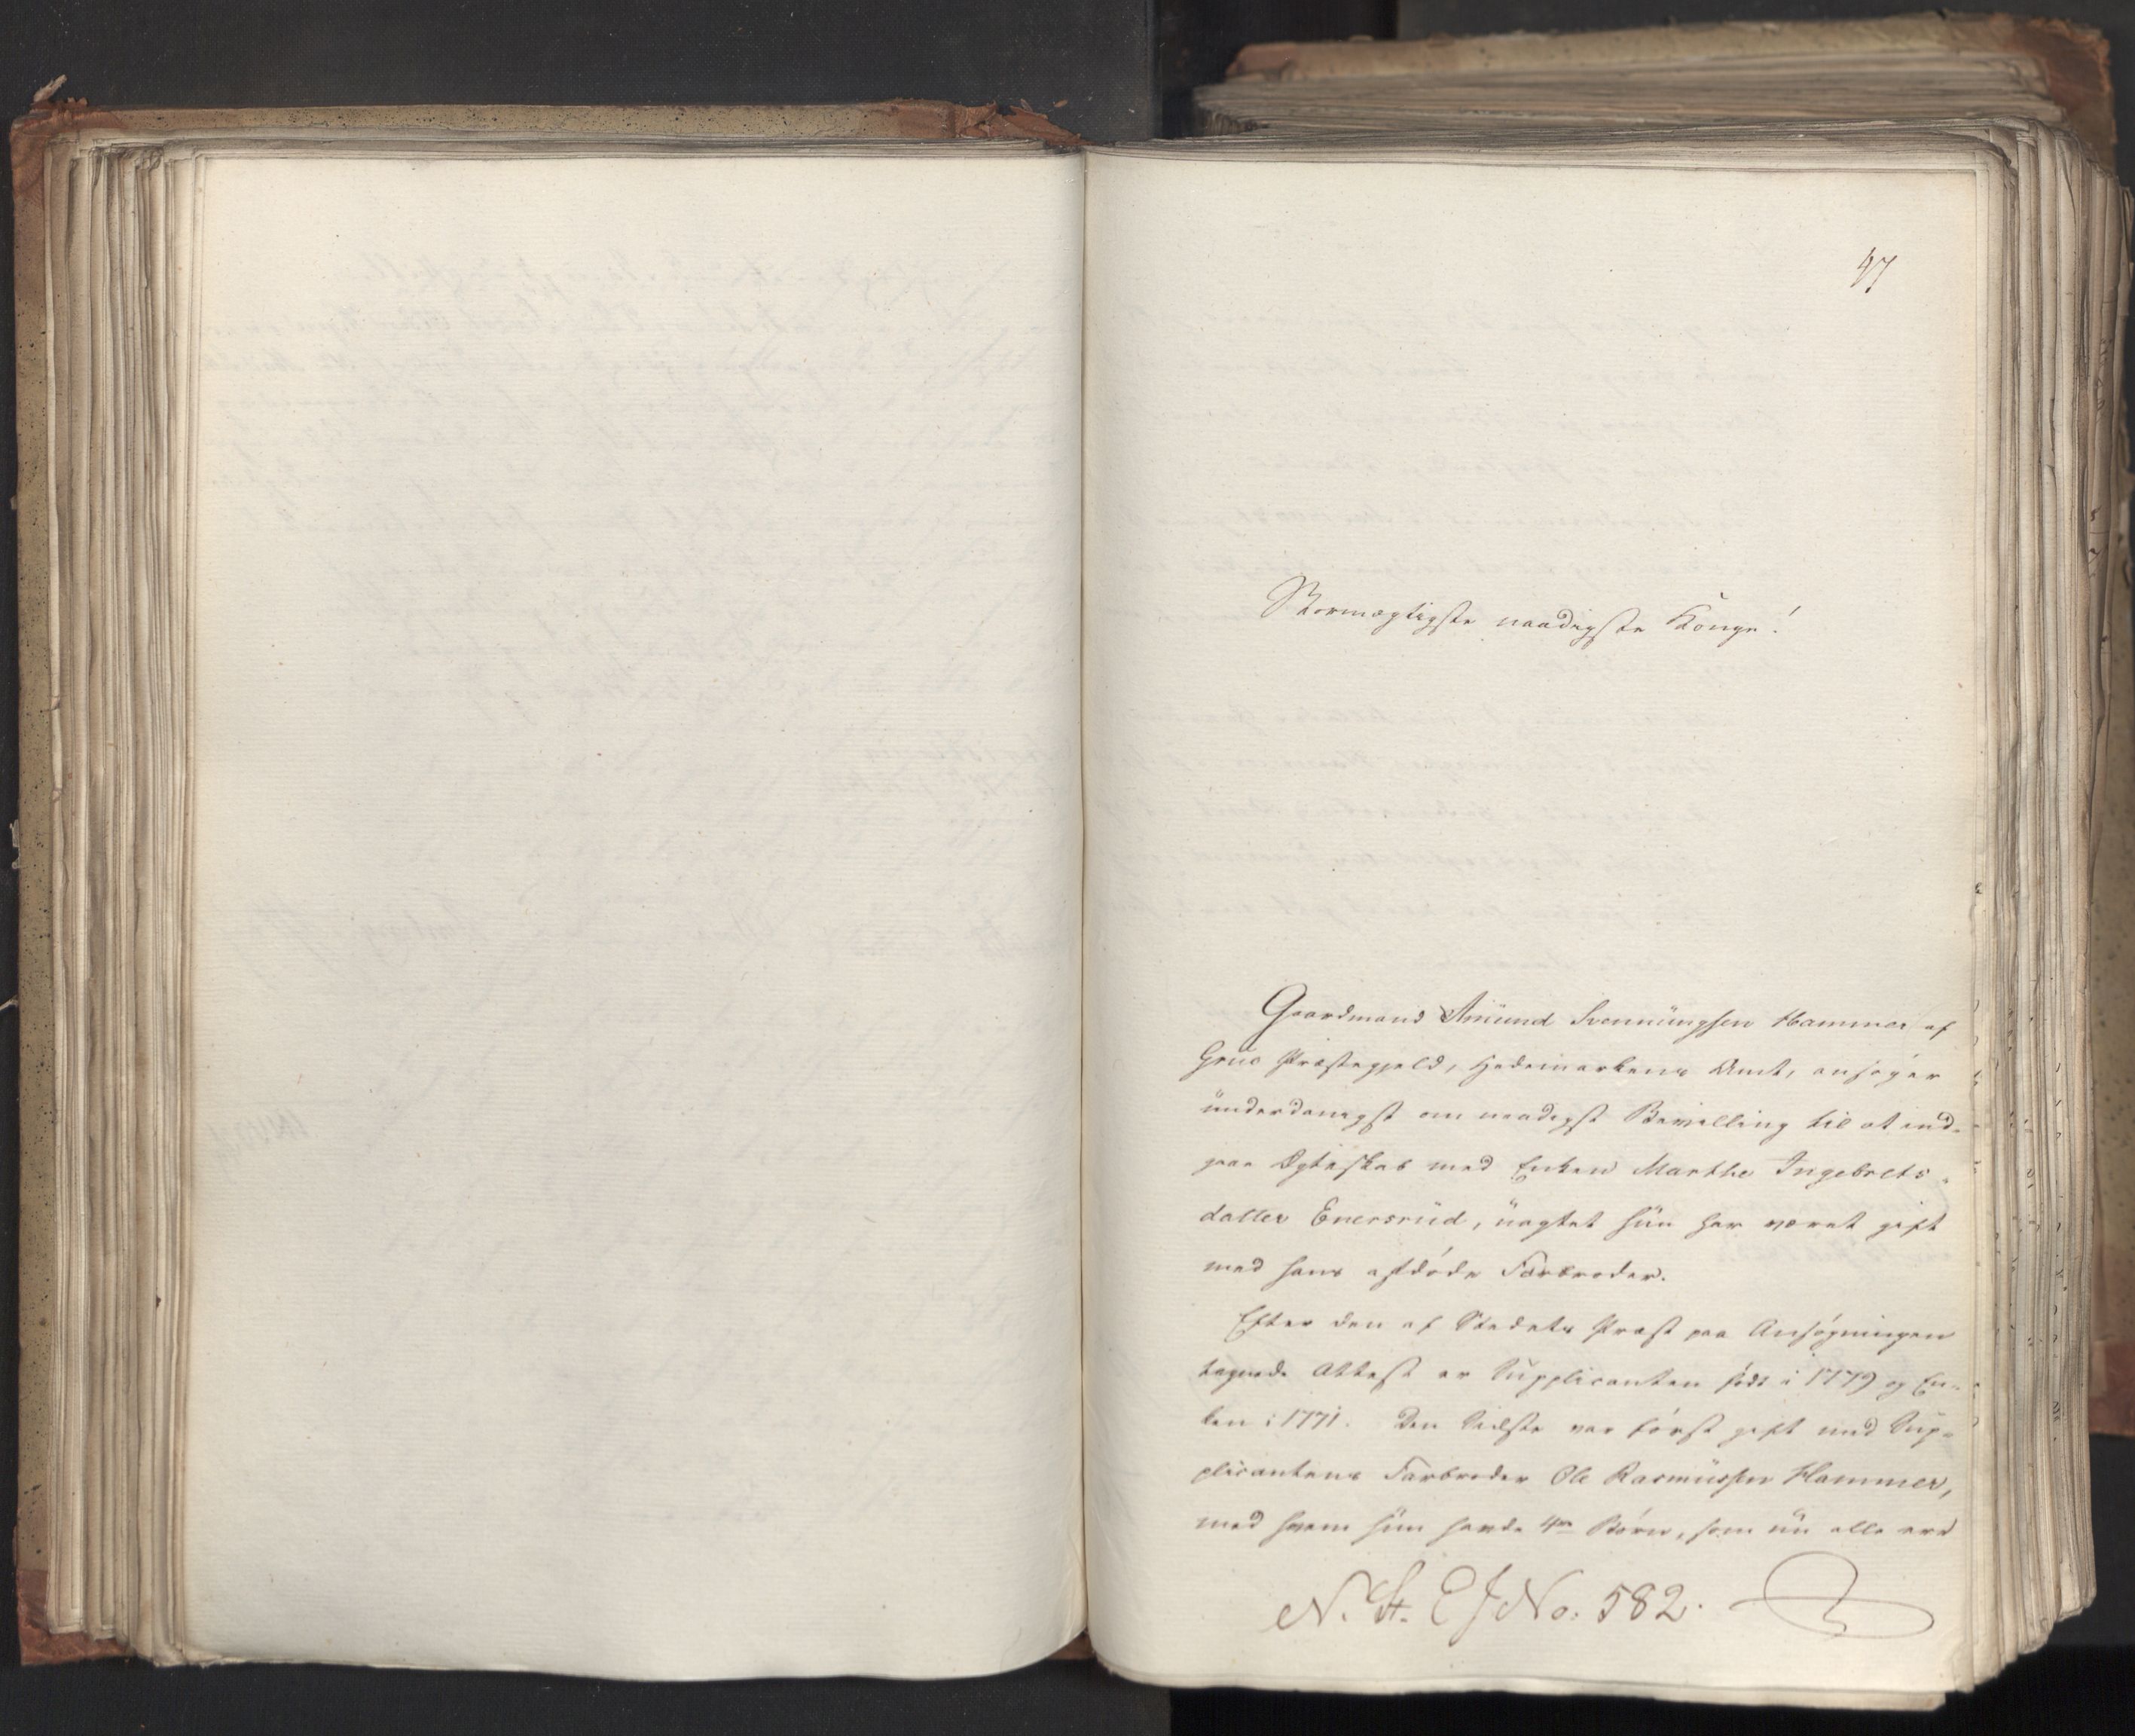 47
Stormægtigste naadigste Konge!
Gaardmand Amund Svennungsen Hammer af
Grue Præstegjeld, Hedemarkens Amt, ansøger
underdanigst om naadigst Bevilling til at ind-
gaa Ægteskab med Enken Marthe Ingebrets-
datter Enersrud, uagtet hun har været gift
med hans afdøde Farbroder.
Efter den af Stedets Præst paa Ansøgningen
tegnede Attest er Supplicanten født i 1779 og En-
ken i 1771. Den sidste var først gift med Sup-
plicantens Farbroder Ole Rasmussen Hammer,
med hvem hun havde 4re Børn, som nu alle ere
N. St. E J No. 582.